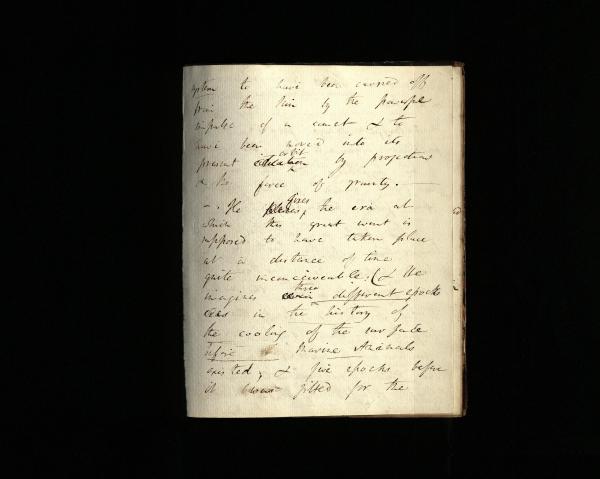 system to have been carried off
from the Sun by the powerful
impulse of a comet & to
have been moved into its
orbit
present situation by projection
& the force of gravity. —
— . He places gives the era at
which this great event is
supposed to have taken place
at a distance of time
quite inconceivable; (& He
imagines three different epochs
in the history of
the cooling of the surface
before Marine Animals
existed, & five epochs before
it was fitted for the